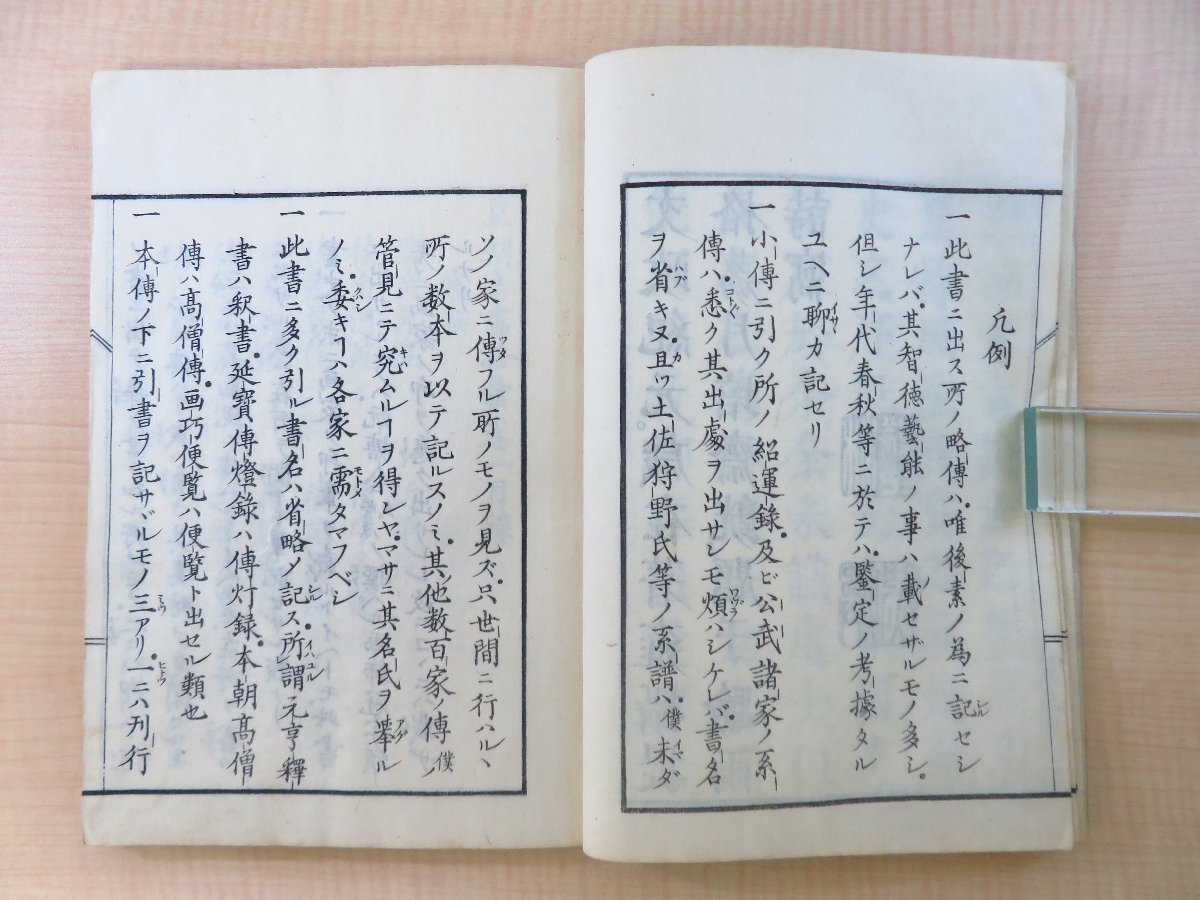 凡例
一此書ニ出ス所ノ略傳ハ唯後素ノ為ニ記セシ
ナレバ其智徳藝能ノ事ハ載セザルモノ多シ
但シ年代春秋等ニ於テハ鑒定ノ考據タル
ユヘニ聊カ記セリ
一小傳ニ引ク所ノ紹運録及ビ公武諸家ノ系
傳ハ悉ク其出處ヲ出サレモ煩ハシケレバ書名
ヲ省キヌ且ツ土佐狩野氏等ノ系譜ハ僕未ダ
ソノ家ニ傳フル所ノモノヲ見ズ只世間ニ行ハルヽ
所ノ数本ヲ以テ記ルスノミ其他数百家ノ傳僕ノ
管見ニテ究ムルヿヲ得レヤマサニ其名氏ヲ舉ル
ノミ委キヿハ各家ニ需タマフベシ
一此書ニ多ク引ル書名ハ省略〆記ス所謂元亨釋
書ハ釈書延寶傳燈錄ハ傳灯録本朝髙僧
傳ハ髙僧傳画巧便覧ハ便覧ト出セル類也
一本傳ノ下ニ引書ヲ記サヾルモノ三アリ一ニハ刋行